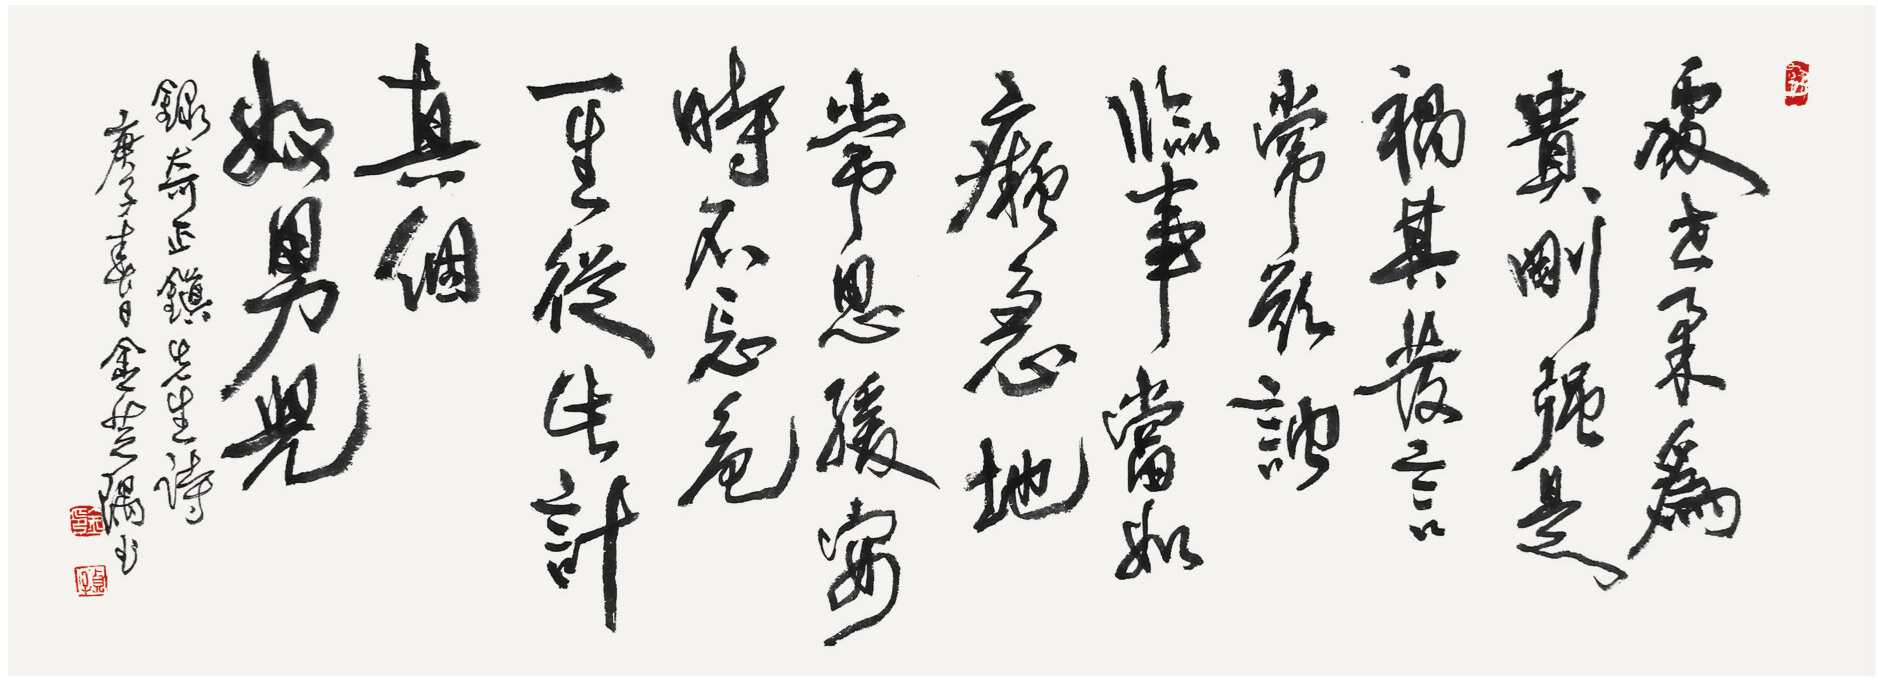 處世柔爲
貴剛强是
禍其發言
常欲訥
臨事當如
癡急地
常思緩安
時不忘危
一生從此計
真個
好男兒
錄奇正鎮先生詩
庚子春日金隅书